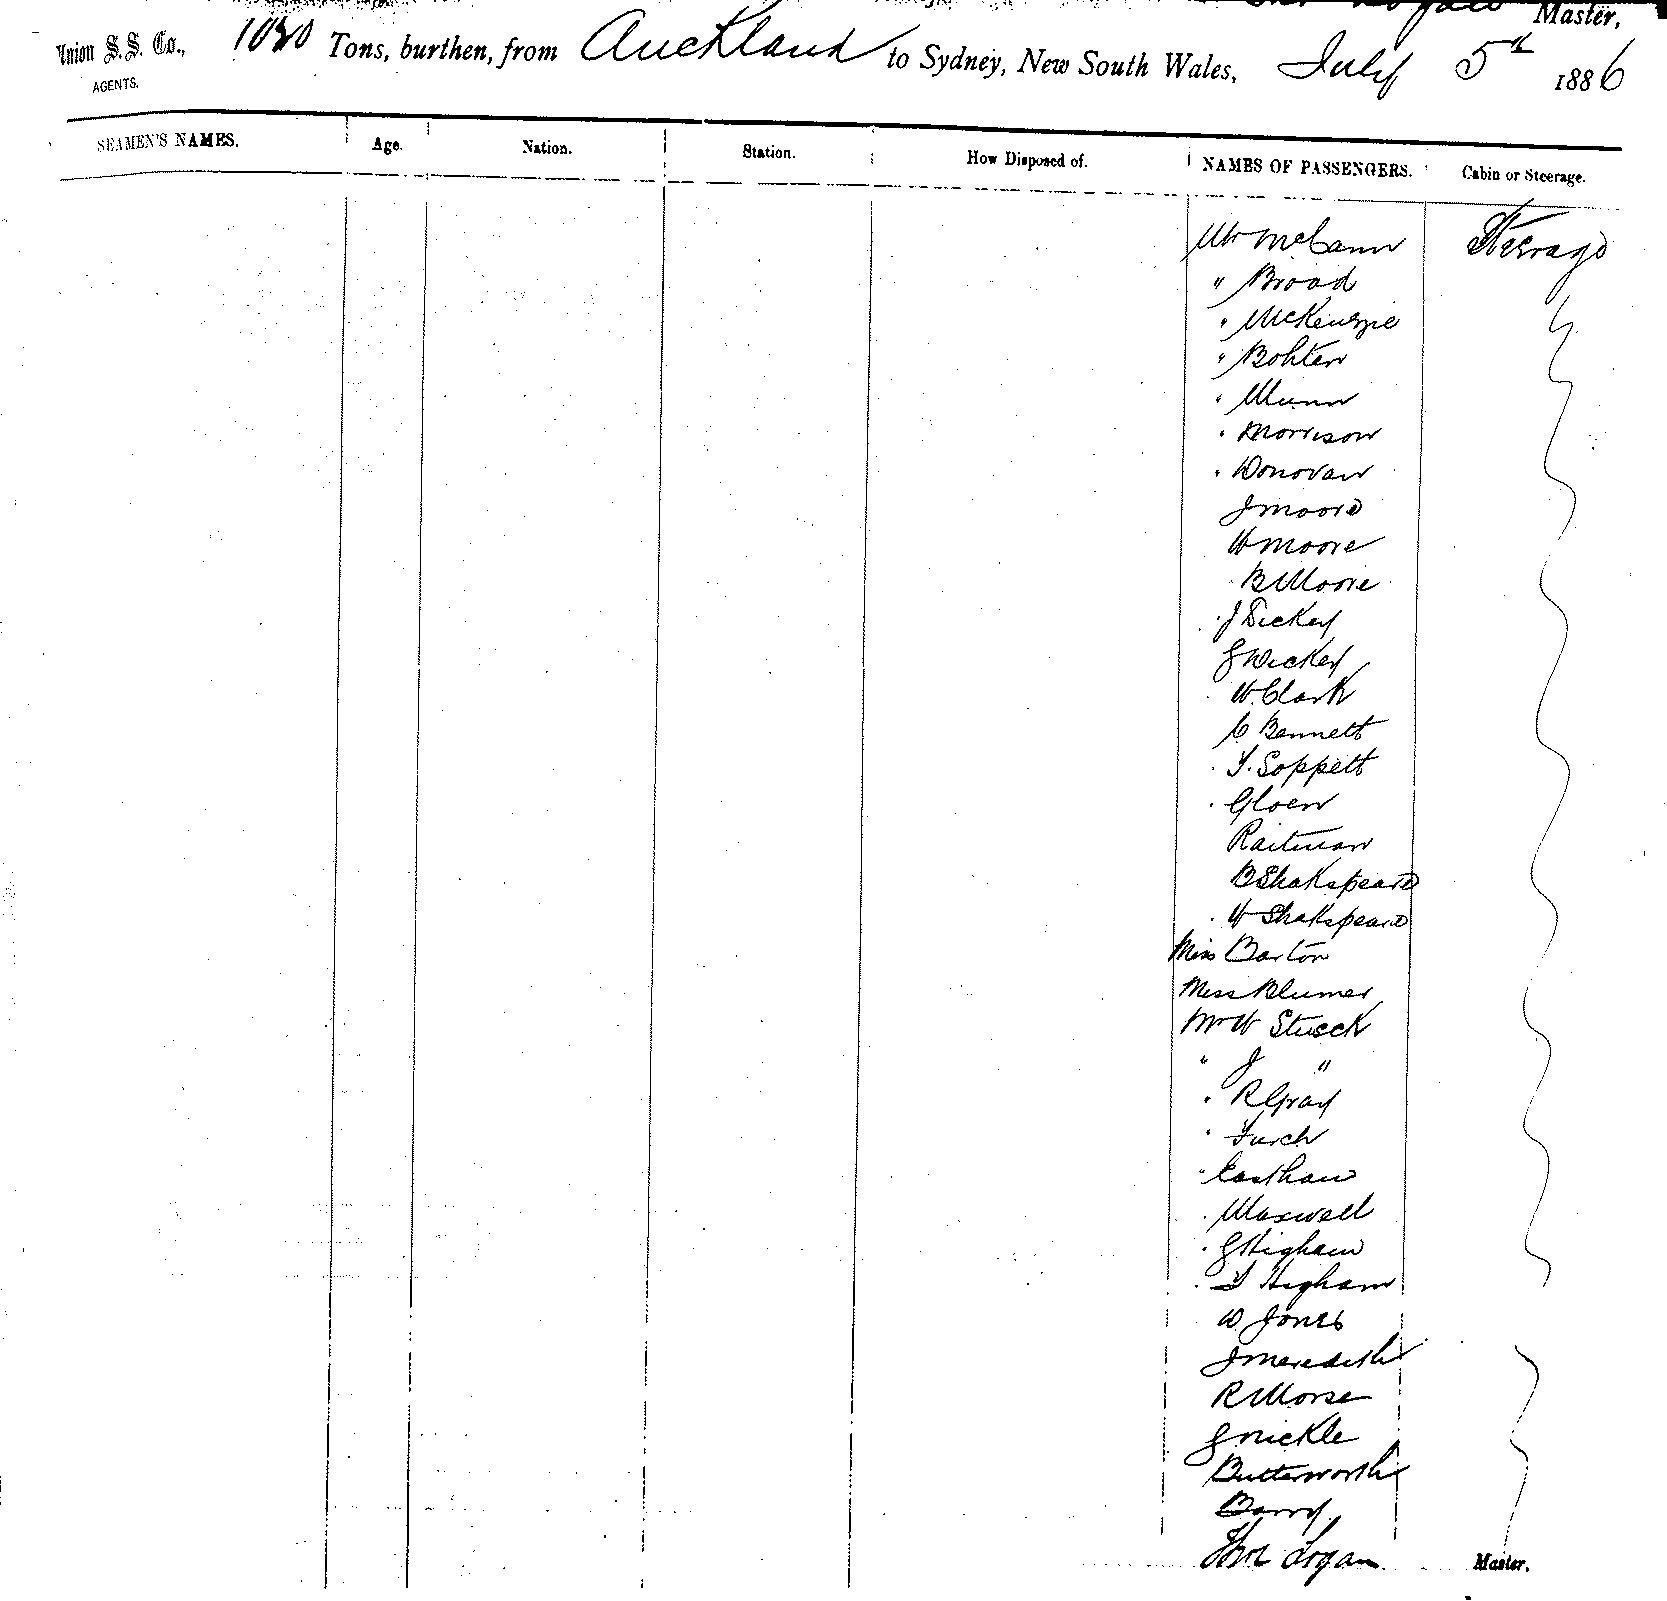 Master,
Union S.S. Co., 1030 Tons, burthen, from Auckland to Sydney, New South Wales, July 5th 1886
AGENTS.
SEAMEN'S NAMES. Age. Nation. Station. How Disposed of. NAMES OF PASSENGERS. Cabin or Steerage.
Mr McCann Steerage
" Broad
" McKenzie
" Bohten
" Munn
" Morrison
" Donovan
J Moore
W Moore
B Moore
J Dickey
G Dickey
W. Clark
C Bennett
T. Soppett
Gloen
Raitman
B Shakspeare
W Shakspeare
Miss Barton
Miss Blumer
Mr W Stueck
" J "
" R Gray
" Furch
" Eastham
Maxwell
G Higham
T Higham
W Jones
J Meredith
R Morse
G Nickle
Butterworth
Barry
Thos Logan Master.